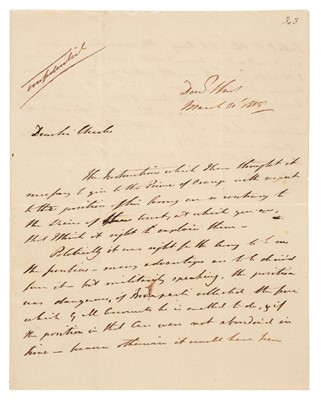 confidential
March 1815
Dear Sir Charles
the Instructions which I have thought it
necessary to give to the Prince of Orange with respect
to the position of his Army are so contrary to
the Views of Court, at which you are,
that I think it right to explain them —
Politically it was right for the Army to be on
the frontier — many advantages are to be derived
from it — but militarily speaking, the position
was dangerous, if Bonaparte collected the force
which by all Accounts he is enabled to do, & if
the position in that Case were not abandoned in
time — because otherwise it would have been